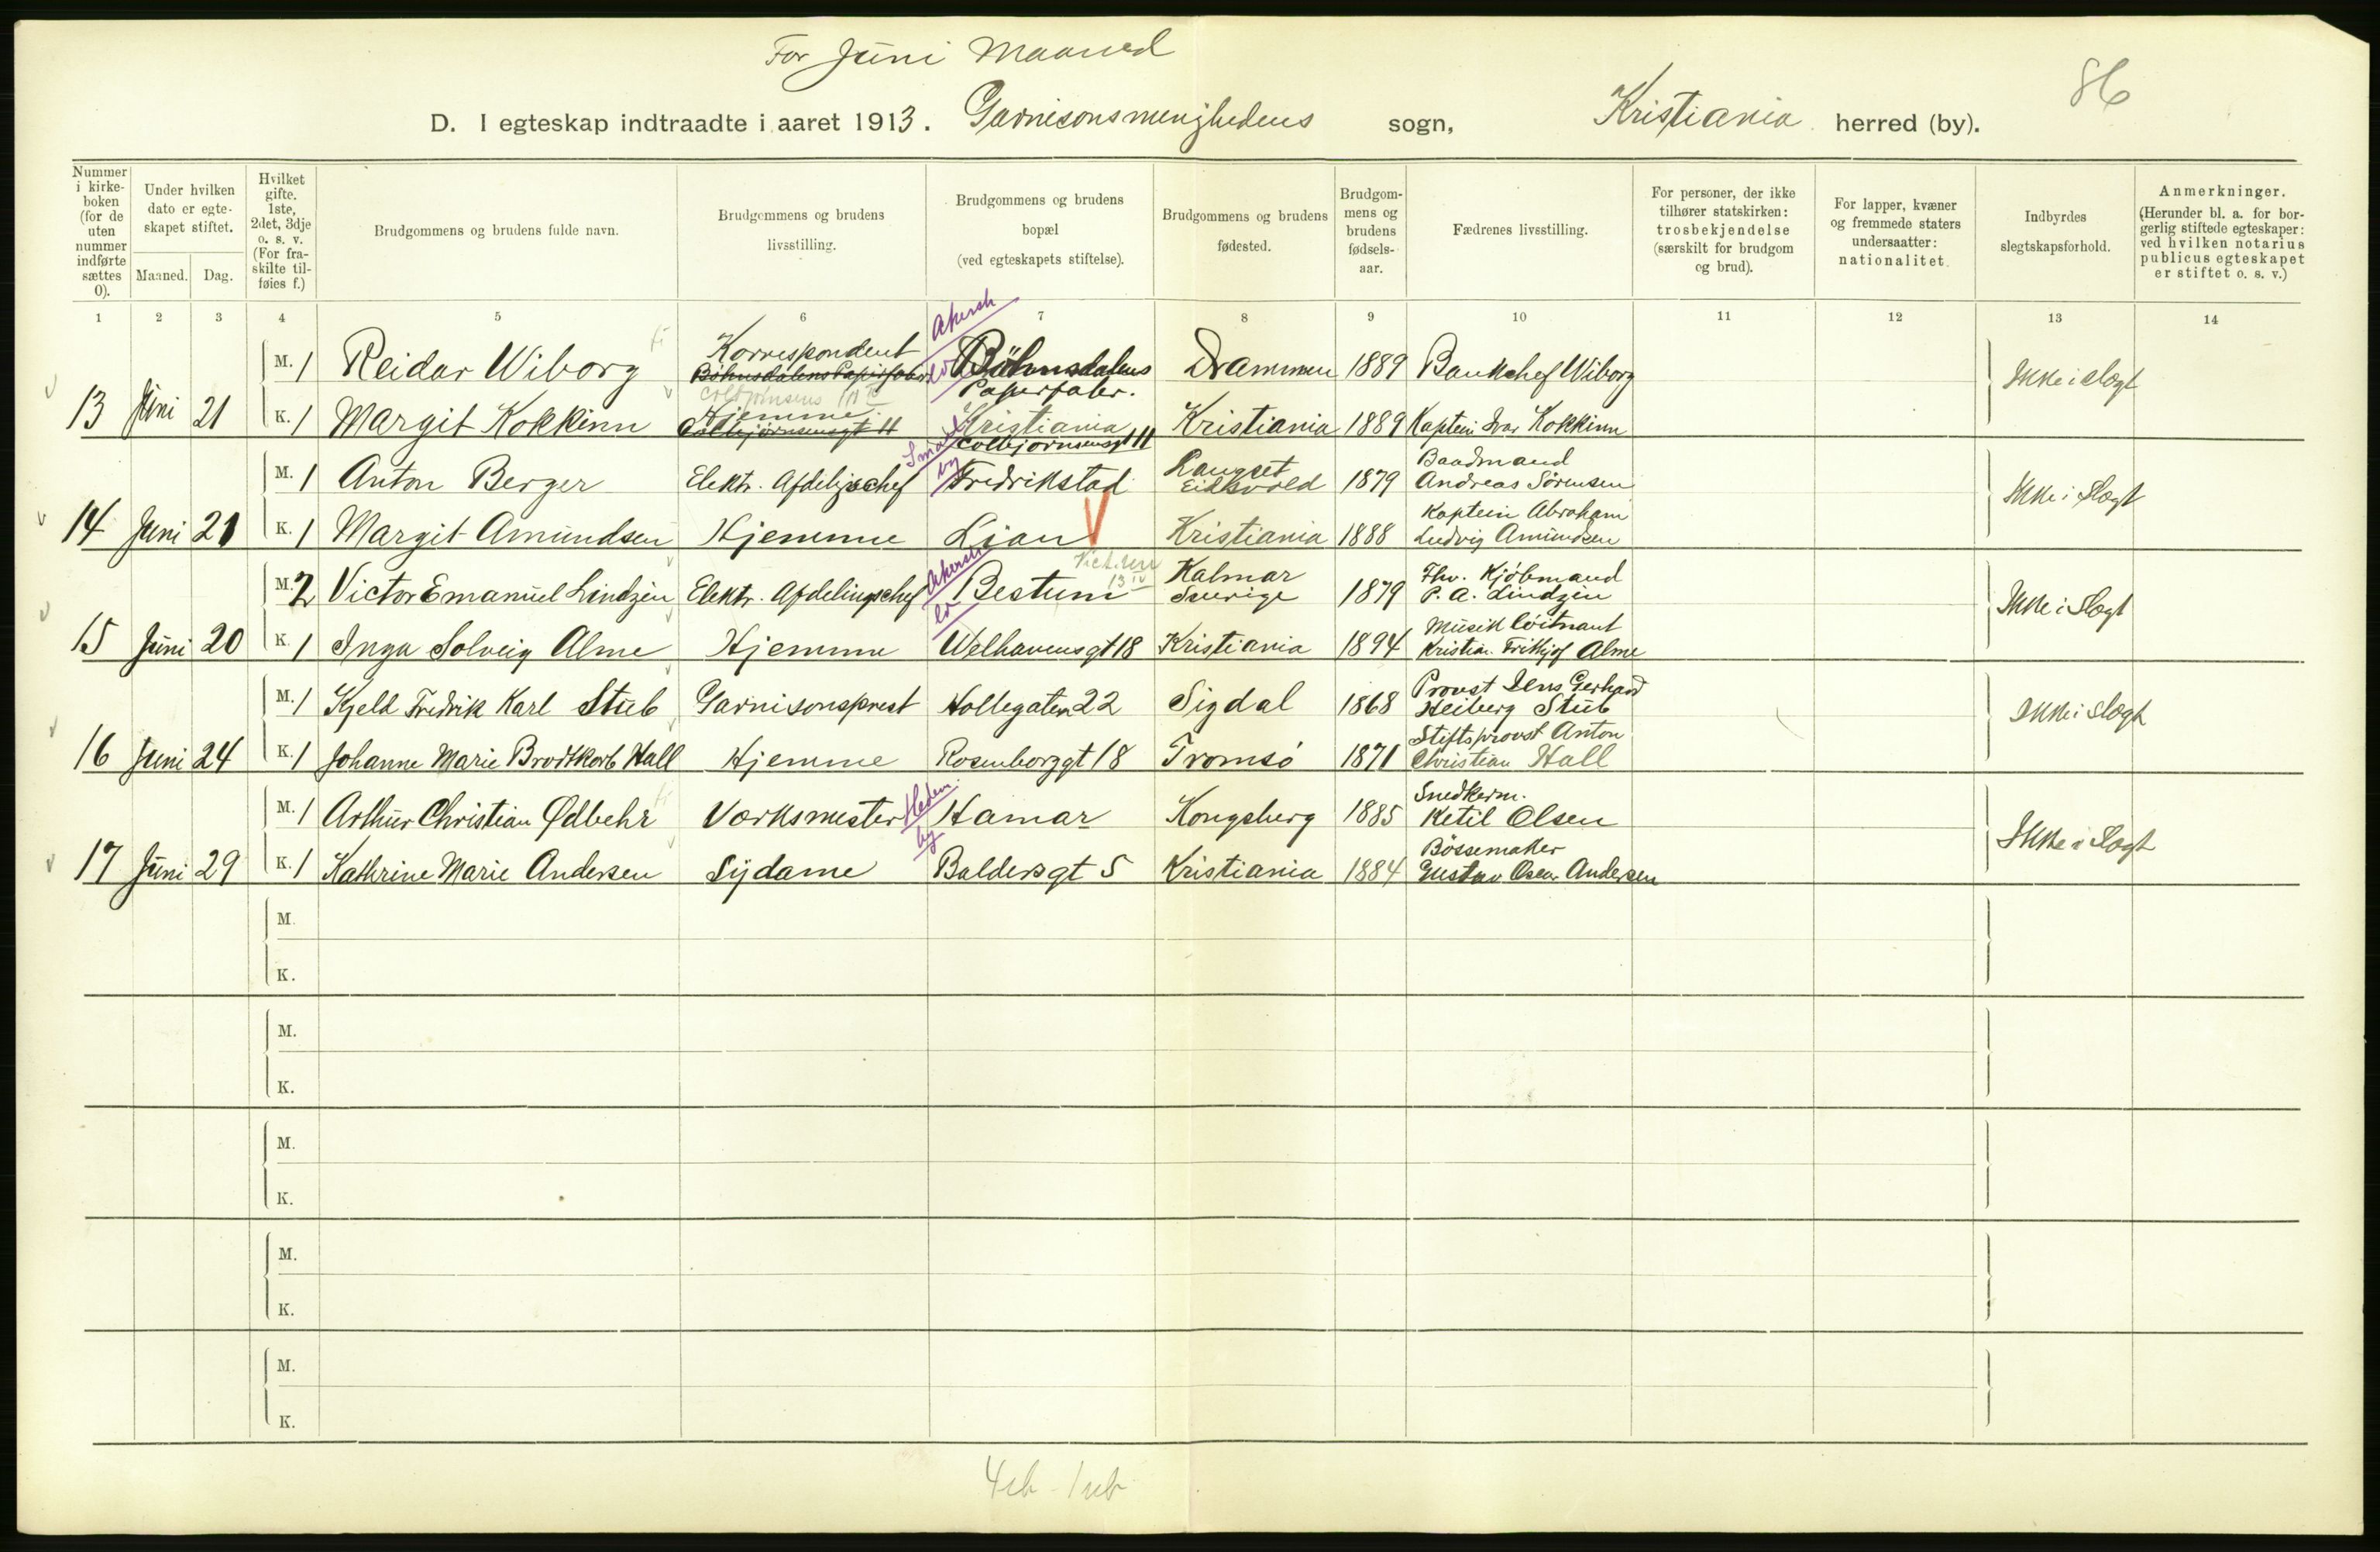 For Juni Maaned
86
D. I egteskap indtraadte i aaret 1913. Garnisonsmenighedens sogn, Kristiania herred (by).
Nummer i kirkeboken (for de uten nummer indførte sættes 0).
Under hvilken dato er egteskapet stiftet.
Maaned. Dag.
Hvilket gifte. 1ste, 2det, 3dje o. s. v. (For fraskilte tilføies f.)
Brudgommens og brudens fulde navn.
Brudgommens og brudens livsstilling.
Brudgommens og brudens bopæl (ved egteskapets stiftelse).
Brudgommens og brudens fødested.
Brudgommens og brudens fødselsaar.
Fædrenes livsstilling.
For personer, der ikke tilhører statskirken: trosbekjendelse (særskilt for brudgom og brud).
For lapper, kvæner og fremmede staters undersaatter: nationalitet.
Indbyrdes slegtskapsforhold.
Anmerkninger. (Herunder bl. a. for borgerlig stiftede egteskaper: ved hvilken notarius publicus egteskapet er stiftet o. s. v.)
1 2 3 4 5 6 7 8 9 10 11 12 13 14
Akersh
M. 1 Reidar Wiborg Korrespondent Bøhnsdalens Papirfabr Bøhnsdalens Papirfabr. Drammen 1889 Bankchef Wiborg Ikke i slægt
13 Juni 21 K. 1 Margit Kokkinn Hjemme Colbjørnsensgt 11 Kristiania Colbjørnsensgt 11 Kristiania 1889 Kaptein Ivar Kokkinn
Smaal by
M. 1 Anton Berger Elektr. Afdelgschef Fredrikstad Langset Eidsvold 1879 Baadmand Andreas Sörensen Ikke i Slægt
14 Juni 21 K. 1 Margit Amundsen Hjemme Lian Kristiania 1888 Kaptein Abraham Ludvig Amundsen
Akersh
M. 2 Victor Emanuel Lindzén Elektr. Afdelingschef Bestum Kalmar Sverige 1879 Fhv. Kjöbmand P. A. Lindzén Ikke i Slægt
15 Juni 20 K. 1 Inga Solveig Alme Hjemme Welhavensgt 18 Kristiania 1894 Musik löitnant Kristian Frithjof Alme
M. 1 Kjeld Fredrik Karl Stub Garnisonsprest Holtegaten 22 Sigdal 1868 Provst Jens Gerhard Heiberg Stub Ikke i Slægt
16 Juni 24 K. 1 Johanne Marie Brodtkorb Hall Hjemme Rosenborggt 18 Tromsö 1871 Stiftsprovst Anton Christian Hall
Hedm by
M. 1 Arthur Christian Ødbehr Værksmester Hamar Kongsberg 1885 Snedkerm. Ketil Olsen Ikke i Slægt
17 Juni 29 K. 1 Kathrine Marie Andersen Sydame Baldersgt 5 Kristiania 1884 Bössemaker Gustav Oscar Andersen
M.
K.
M.
K.
M.
K.
M.
K.
M.
K.